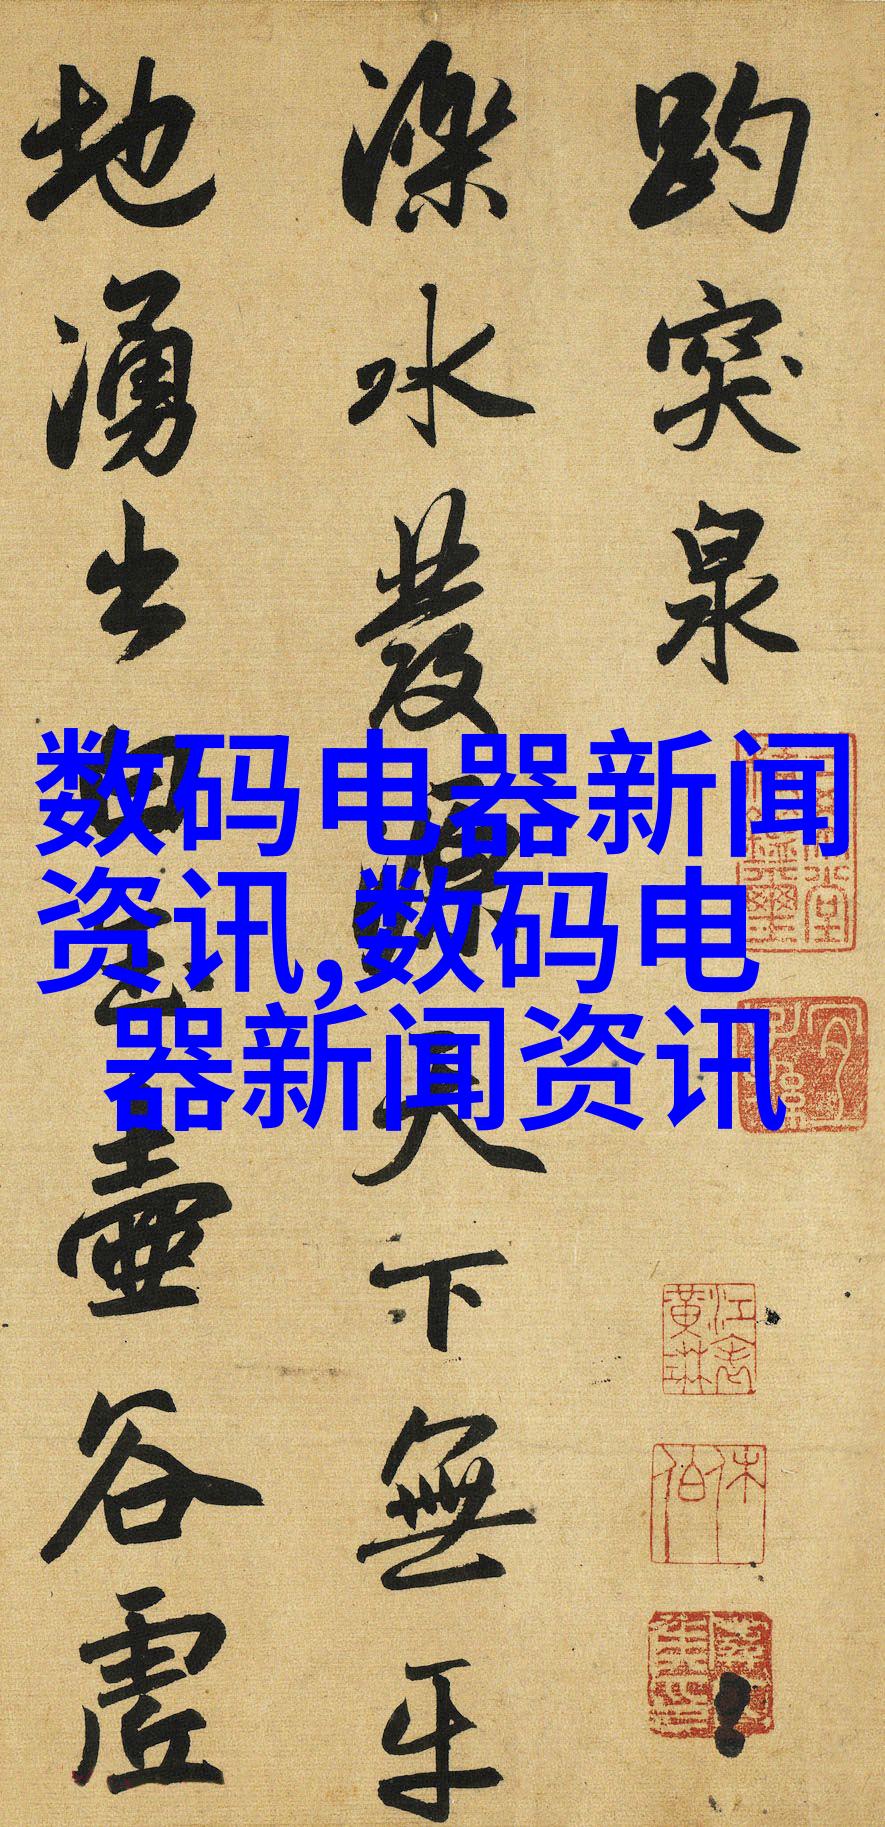 趵突泉
濼水發源天下無
平地湧出白玉壺
谷虛
数码电器新闻
资讯,数码电
器新闻资讯